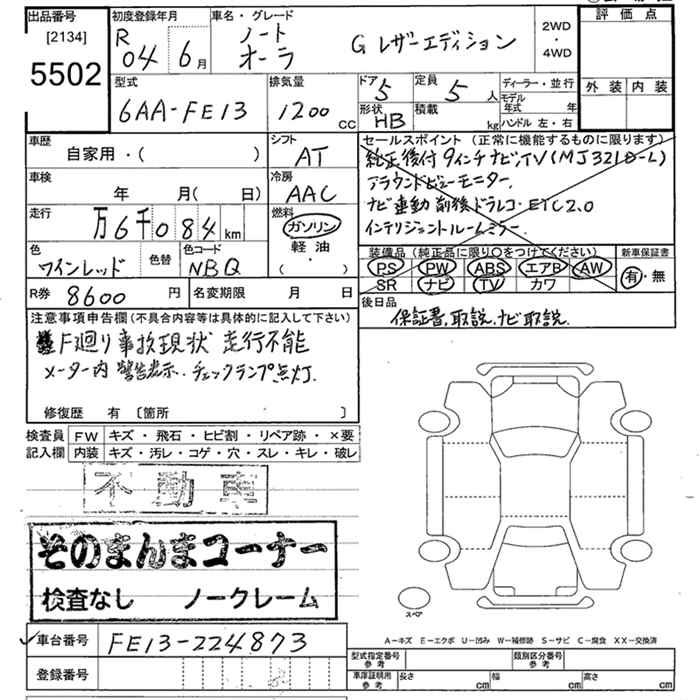 出品番号
[2134]
5502
初度登録年月
R 04 6月
車名・グレード
ノート
オーラ
G レザーエディション
2WD
・
4WD
評価点
外装 内装
型式
6AA-FE13
排気量
1200 cc
ドア
5
定員
5 人
形状
HB
積載
kg
ディーラー・並行
モデル年式 年
ハンドル 左・右
車歴
自家用・( )
シフト
AT
車検
年 月( 日)
冷房
AAC
走行
万6千084km
燃料
ガソリン
軽油
・
( )
色
ワインレッド
色替
色コード
NBQ
R券 8600 円
名変期限 月 日
セールスポイント (正常に機能するものに限ります)
純正後付 9インチナビ,TV(MJ321D-L)
アラウンドビューモニター.
ナビ連動 前後ドラレコ・ETC2.0
インテリジェントルームミラー.
装備品(純正品に限り○をつけてください)
PS PW ABS エアB AW
SR ナビ TV カワ
新車保証書
有・無
後日品
保証書,取説,ナビ取説.
注意事項申告欄(不具合内容等は具体的に記入して下さい)
F廻り事故現状 走行不能
メーター内 警告表示. チェックランプ点灯.
修復歴 有 〔箇所 〕
検査員記入欄
FW キズ・飛石・ヒビ割・リペア跡・×要
内装 キズ・汚レ・コゲ・穴・スレ・キレ・破レ
不動車
そのまんまコーナー
検査なし ノークレーム
スペア
A−キズ E−エクボ U−凹み W−補修跡 S−サビ C−腐食 XX−交換済
車台番号 FE13-224873
登録番号
型式指定番号 参考
類別区分番号 参考
車庫証明用 参考
長さ cm
幅 cm
高さ cm